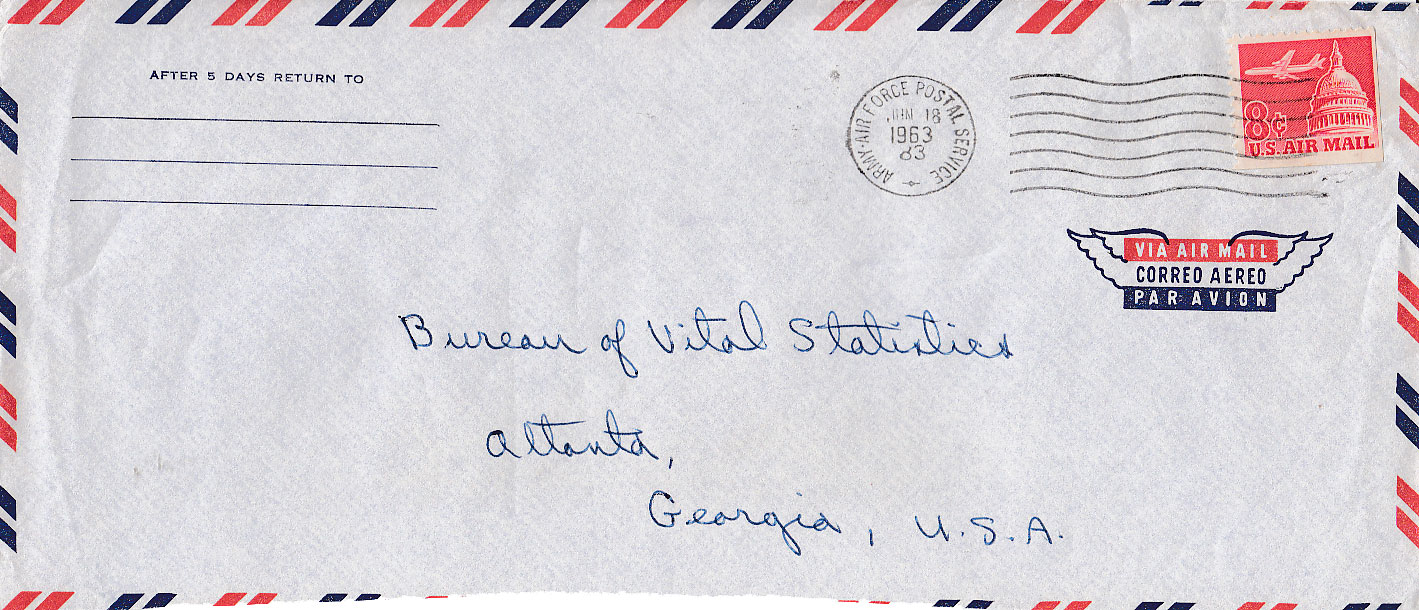 AFTER 5 DAYS RETURN TO
ARMY-AIR FORCE POSTAL SERVICE
JUN 18
1963
8¢
U.S. AIR MAIL
VIA AIR MAIL
CORREO AEREO
PAR AVION
Bureau of Vital Statistics
Altanta,
Georgia, U.S.A.